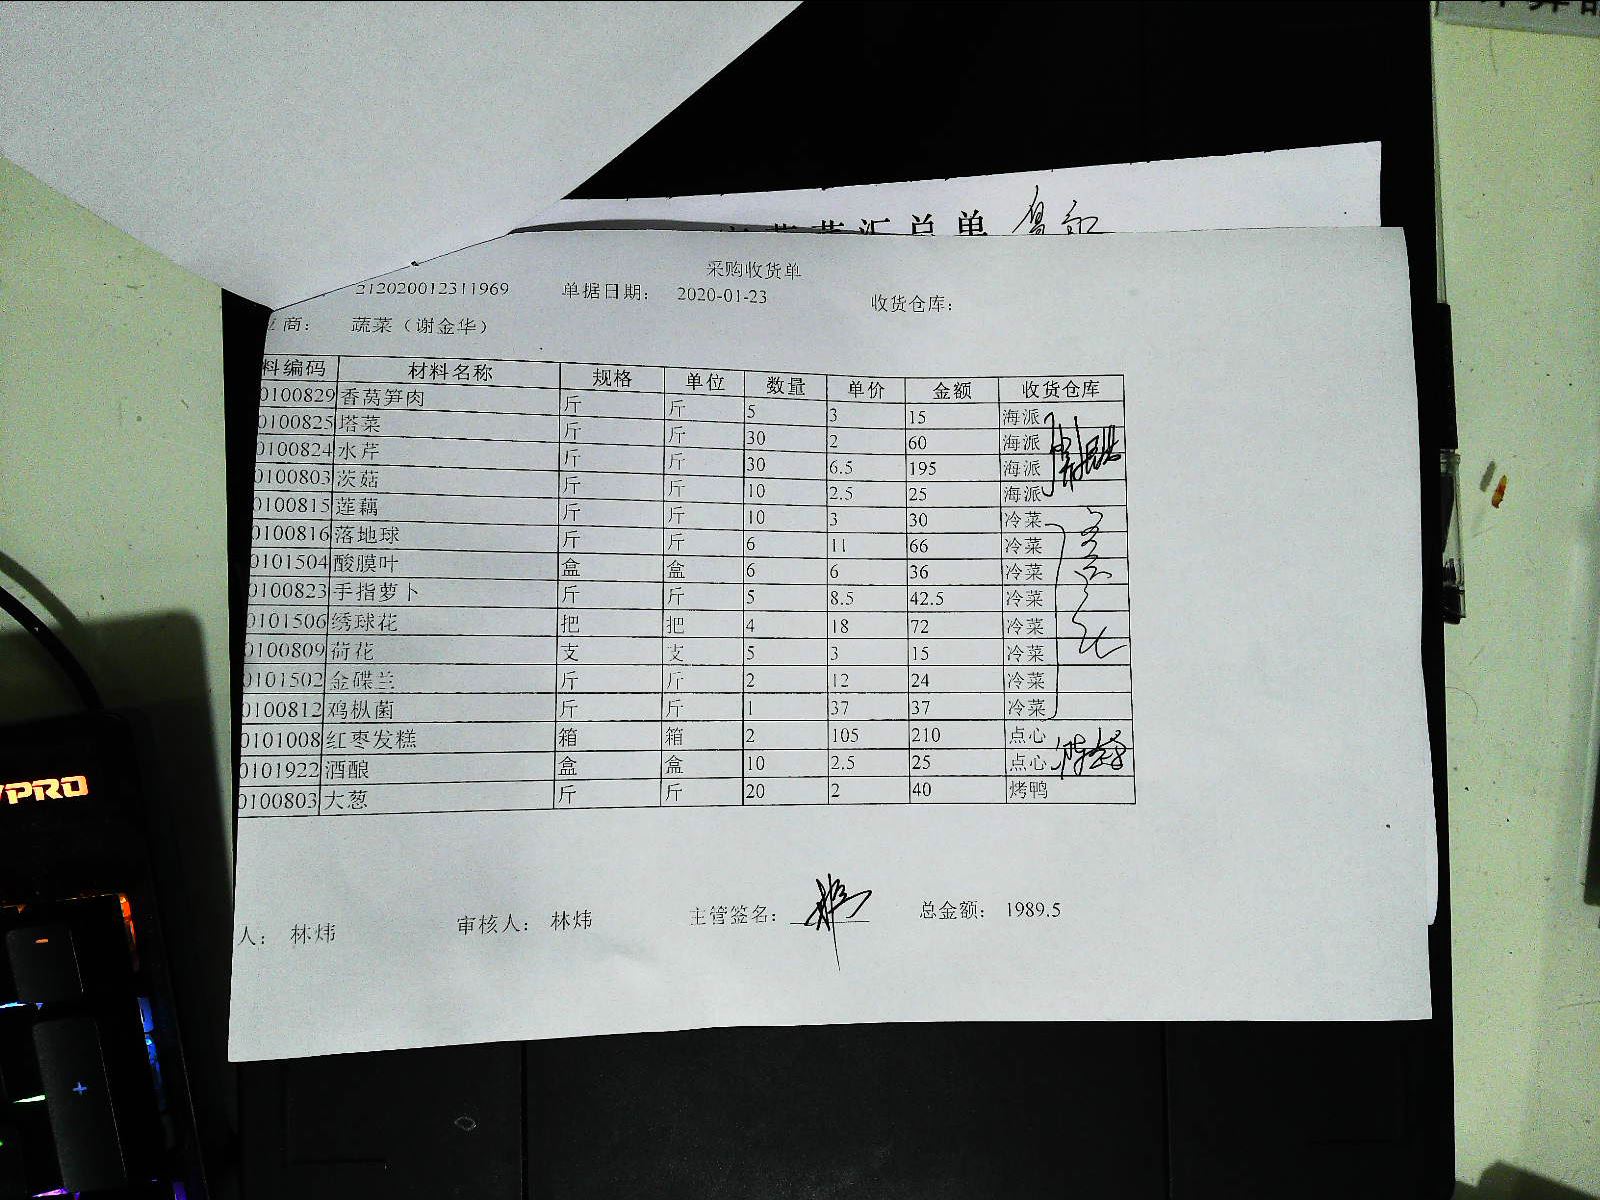 汇总单
采购收货单
212020012311969 单据日期： 2020-01-23 收货仓库：
应商： 蔬菜（谢金华）
料编码 材料名称 规格 单位 数量 单价 金额 收货仓库
0100829 香莴笋肉 斤 斤 5 3 15 海派
0100825 塔菜 斤 斤 30 2 60 海派
0100824 水芹 斤 斤 30 6.5 195 海派
0100803 茨菇 斤 斤 10 2.5 25 海派
0100815 莲藕 斤 斤 10 3 30 冷菜
0100816 落地球 斤 斤 6 11 66 冷菜
0101504 酸膜叶 盒 盒 6 6 36 冷菜
0100823 手指萝卜 斤 斤 5 8.5 42.5 冷菜
0101506 绣球花 把 把 4 18 72 冷菜
0100809 荷花 支 支 5 3 15 冷菜
0101502 金碟兰 斤 斤 2 12 24 冷菜
0100812 鸡枞菌 斤 斤 1 37 37 冷菜
0101008 红枣发糕 箱 箱 2 105 210 点心
0101922 酒酿 盒 盒 10 2.5 25 点心
0100803 大葱 斤 斤 20 2 40 烤鸭
人： 林炜 审核人： 林炜 主管签名： 总金额： 1989.5
PRO